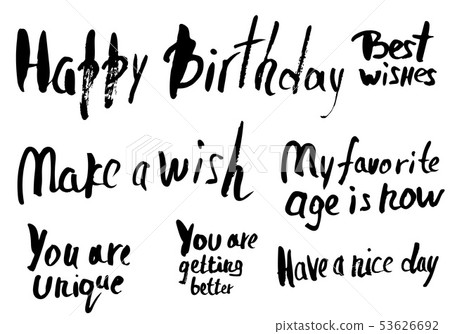 Happy Birthday
Best
wishes
Make a wish
My favorite
age is now
You are
unique
You are
getting
better
Have a nice day
PIXTA
53626692